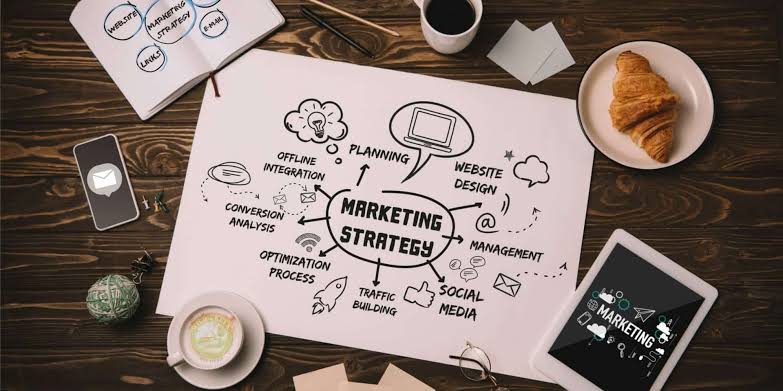 WEBSITE
MARKETING
STRATEGY
E-MAIL
LINKS
PLANNING
OFFLINE
INTEGRATION
WEBSITE
DESIGN
CONVERSION
ANALYSIS
MARKETING
STRATEGY
@
MANAGEMENT
OPTIMIZATION
PROCESS
TRAFFIC
BUILDING
SOCIAL
MEDIA
MARKETING